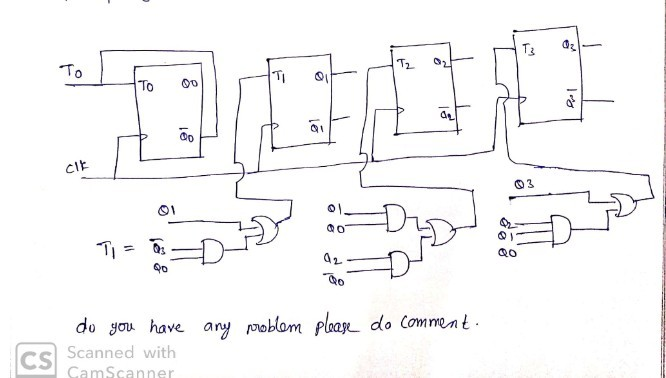 To
TO
Q0
Q̅0
T1
Q1
Q̅1
T2
Q2
Q̅2
T3
Q3
Q̅3
Clk
Q1
T1 =
Q̅3
Q0
Q1
Q0
Q2
Q̅0
Q3
Q2
Q1
Q0
do you have any problem please do comment.
CS Scanned with
CamScanner